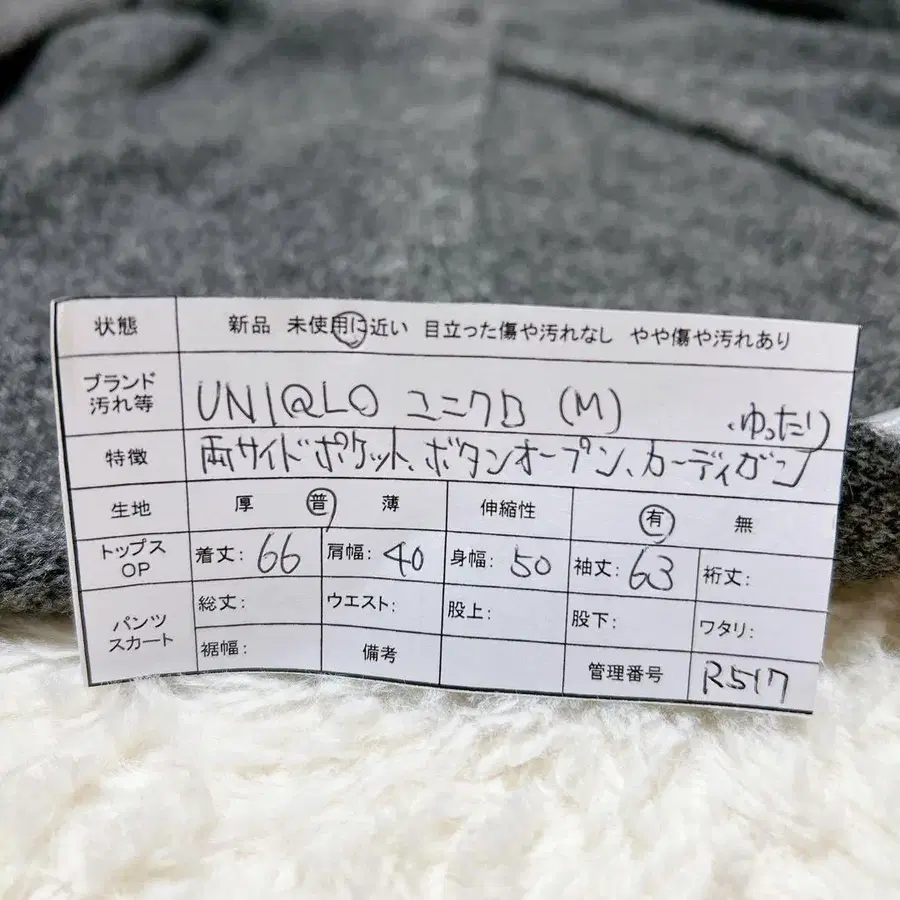 状態 新品 未使用に近い 目立った傷や汚れなし やや傷や汚れあり
ブランド
汚れ等 UNIQLO ユニクロ (M) .ゆったり
特徴 両サイドポケット、ボタンオープン、カーディガン
生地 厚 普 薄 伸縮性 有 無
トップス
OP 着丈: 66 肩幅: 40 身幅: 50 袖丈: 63 裄丈:
パンツ
スカート 総丈: ウエスト: 股上: 股下: ワタリ:
裾幅: 備考 管理番号 R517